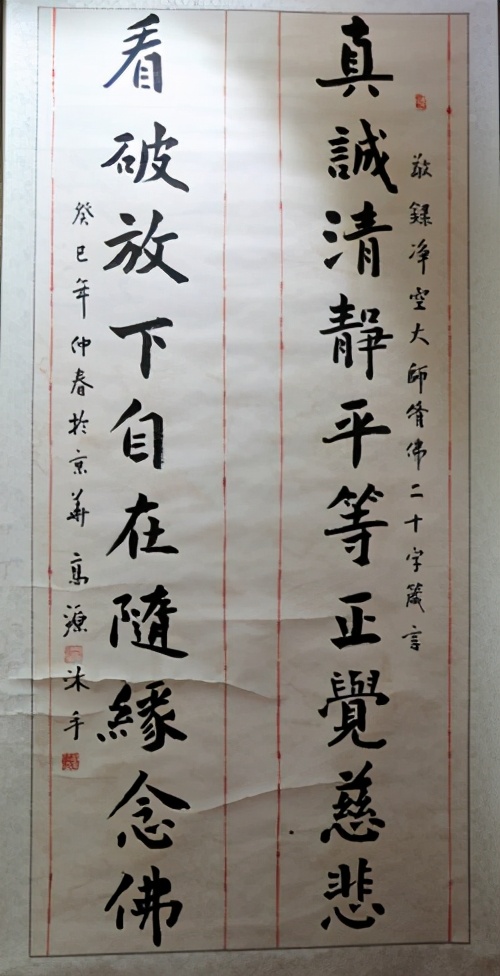 敬録净空大师脩佛二十字箴言
真誠清靜平等正覺慈悲
看破放下自在隨緣念佛
癸巳年仲春於京華高源沐手